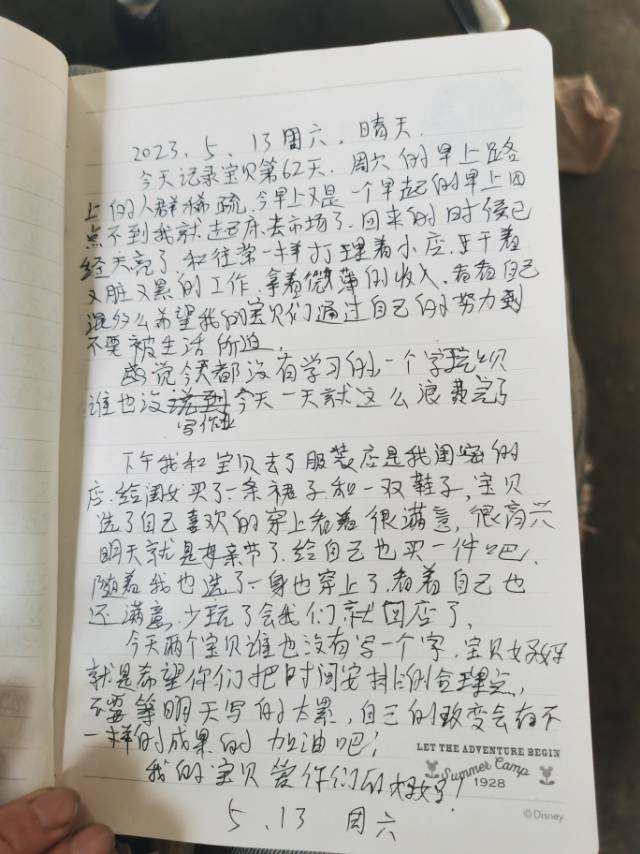 2023、5、13周六、晴天.
今天记录宝贝第62天. 周六的早上路
上的人群稀疏. 今早上又是一个早起的早上四
点不到我就起床去市场了. 回来的时候已
经天亮了. 和往常一样打理着小店. 干着
又脏又累的工作. 拿着微薄的收入. 看看自己
多么希望我的宝贝们通过自己的努力
不要被生活所迫.
说今天都没有学习的一个字
谁也没写作业今天一天就这么浪费完了
下午我和宝贝去了服装店是我闺密的
店. 给闺女买了一条裙子和一双鞋子, 宝贝
选了自己喜欢的穿上看着很满意, 很高兴
明天就是母亲节了. 给自己也买一件吧、
随着我也选了一身也穿上了. 看着自己也
还满意. 少玩了会我们就回店了、
今天两个宝贝谁也没有写一个字. 宝贝好好
就是希望你们把时间安排的合理点,
不要等明天写的太累, 自己的改变会有不
一样的成果的 加油吧!
LET THE ADVENTURE BEGIN
我的宝贝 你们的好好!
Summer Camp
1928
5、13 周六
©Disney